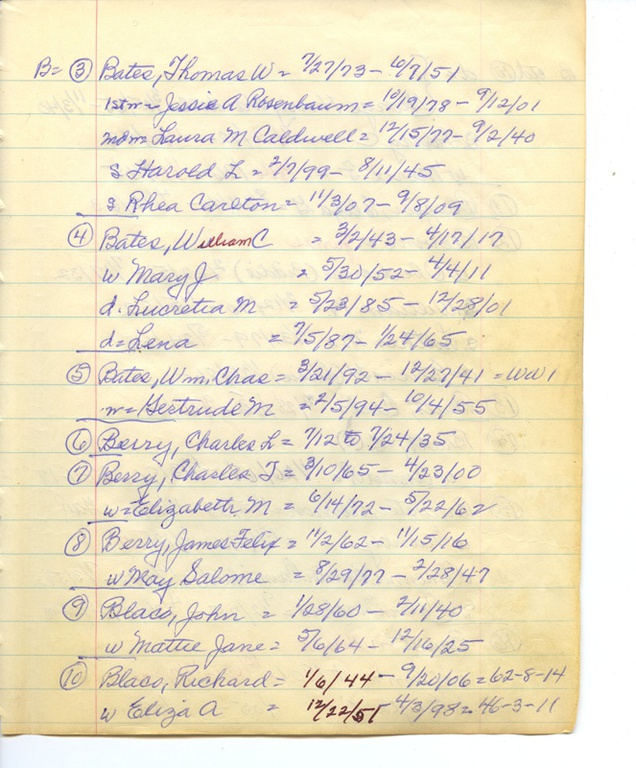 B= ③ Bates, Thomas W = 7/27/73 - 10/7/51
1st m = Jessie A Rosenbaum = 10/19/78 - 9/12/01
2nd m = Laura M Caldwell = 12/15/77 - 9/2/40
s Harold L = 2/7/99 - 8/11/45
s Rhea Carlton = 11/3/07 - 9/8/09
④ Bates, William C = 3/2/43 - 4/17/17
w Mary J = 5/30/52 - 4/4/11
d. Lucretia M = 5/23/85 - 12/28/01
d = Lena = 7/5/87 - 1/24/65
⑤ Bates, Wm. Chas = 3/21/92 - 12/27/41 = WW1
w = Gertrude M = 2/5/94 - 10/4/55
⑥ Berry, Charles L = 7/12 to 7/24/35
⑦ Berry, Charles T = 3/10/65 - 4/23/00
w = Elizabeth M = 6/14/72 - 5/22/62
⑧ Berry, James Felix = 11/2/62 - 11/15/16
w May Salome = 8/29/77 - 2/28/47
⑨ Blaco, John = 1/28/60 - 2/11/40
w Mattie Jane = 5/6/64 - 12/16/25
⑩ Blaco, Richard = 1/6/44 - 9/20/06 = 62-8-14
w Eliza A = 12/22/51 4/3/98 = 46-3-11